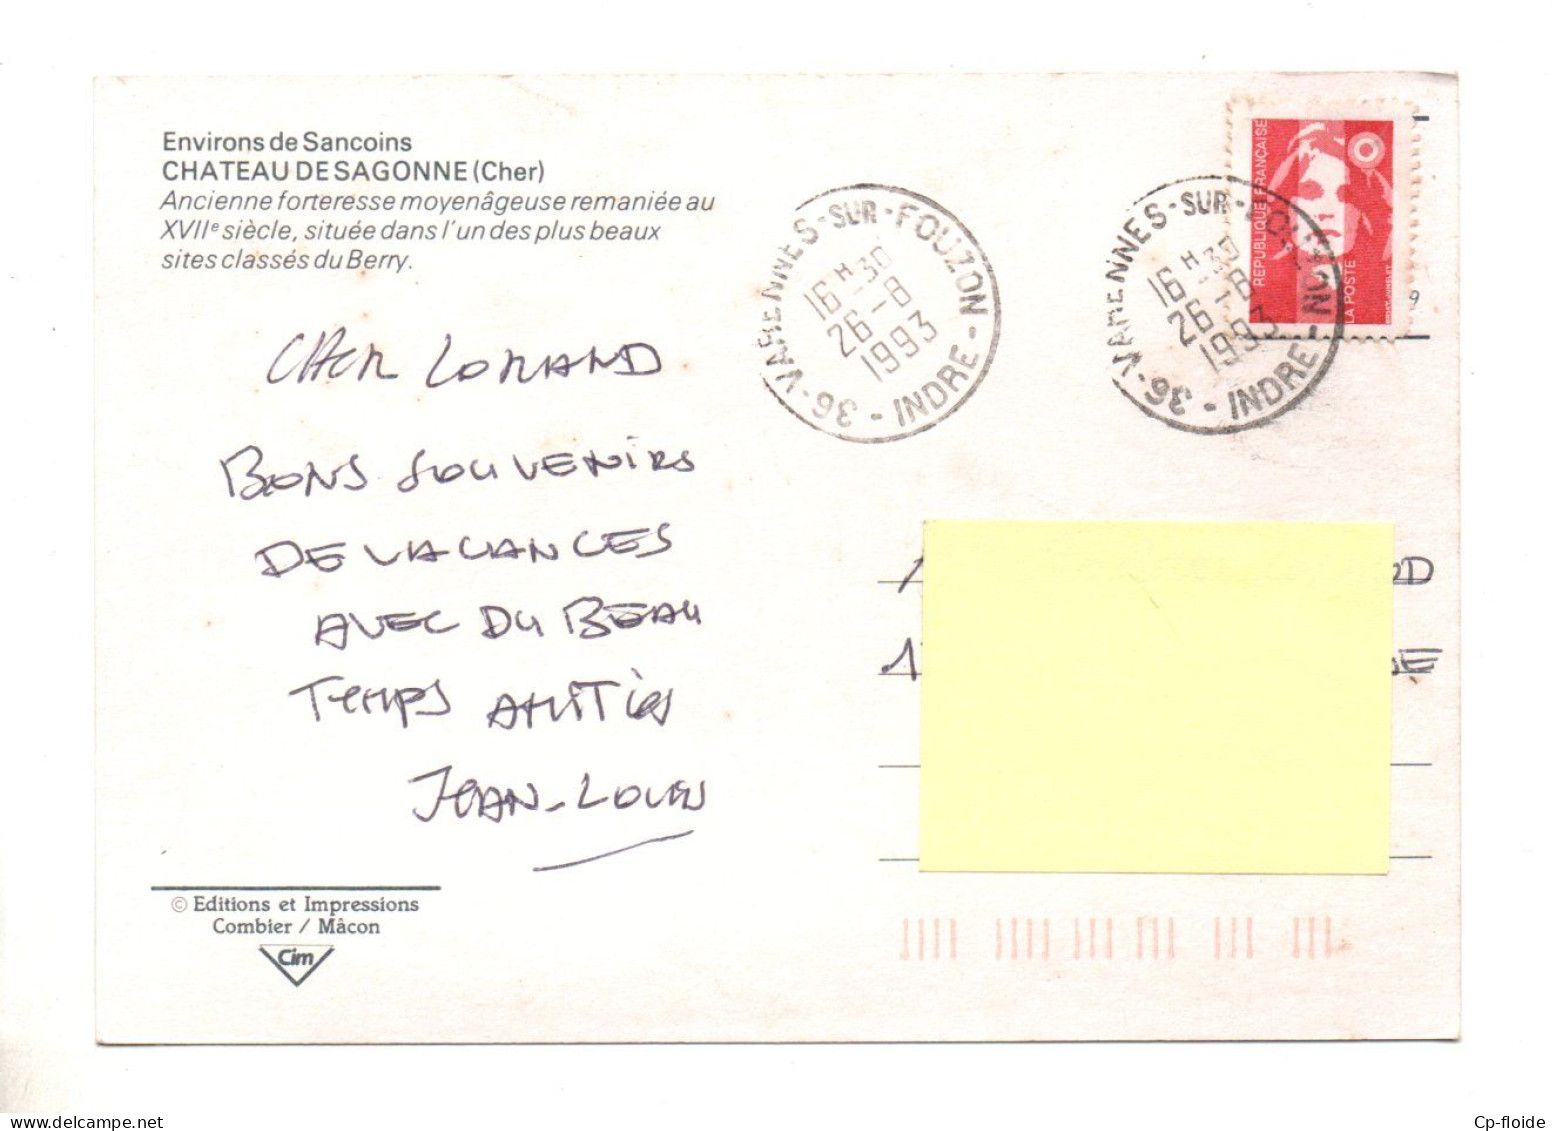 Environs de Sancoins
CHATEAU DE SAGONNE (Cher)
Ancienne forteresse moyenâgeuse remaniée au
XVIIe siècle, située dans l'un des plus beaux
sites classés du Berry.
CHER LORAND
BONS SOUVENIRS
DE VACANCES
AVEC DU BEAU
TEMPS AMITIÉS
JEAN-LOUIS
© Editions et Impressions
Combier / Mâcon
Cim
36-VARENNES-SUR-FOUZON-INDRE-
16H-30
26-8
1993
36-VARENNES-SUR-FOUZON-INDRE-
16H-30
26-8
1993
REPUBLIQUE FRANÇAISE
LA POSTE
9
RD
1
Cp-floide